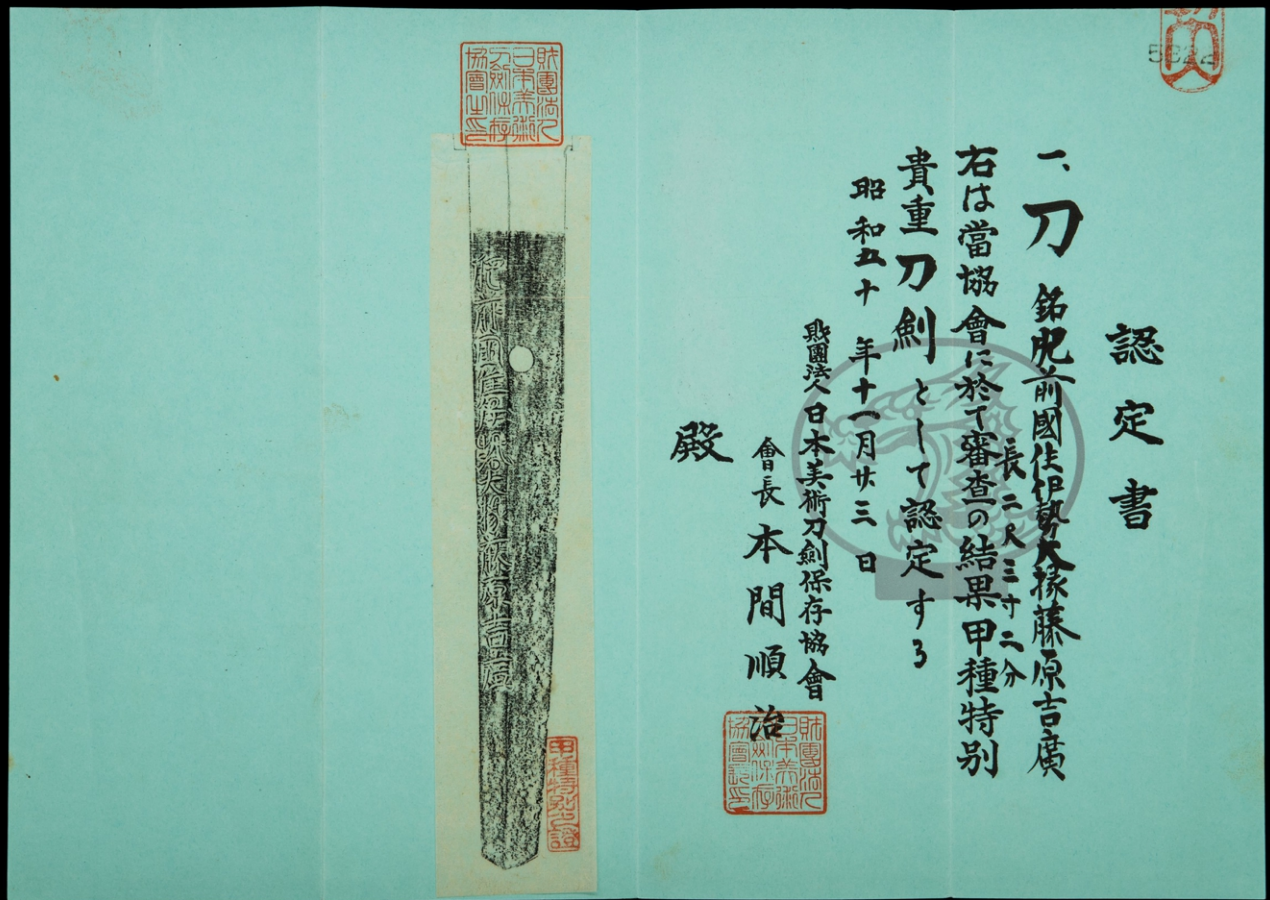 5822
認定書
一、刀 銘肥前國住伊勢大掾藤原吉廣
長二尺三寸二分
右は當協會に於て審査の結果甲種特別
貴重刀剣として認定する
昭和五十年十一月廿三日
財團法人日本美術刀劍保存協會
會長 本間順治
殿
財團法人
日本美術
刀劍保存
協會之印
肥前國住伊勢大掾藤原吉廣
甲種特別之證